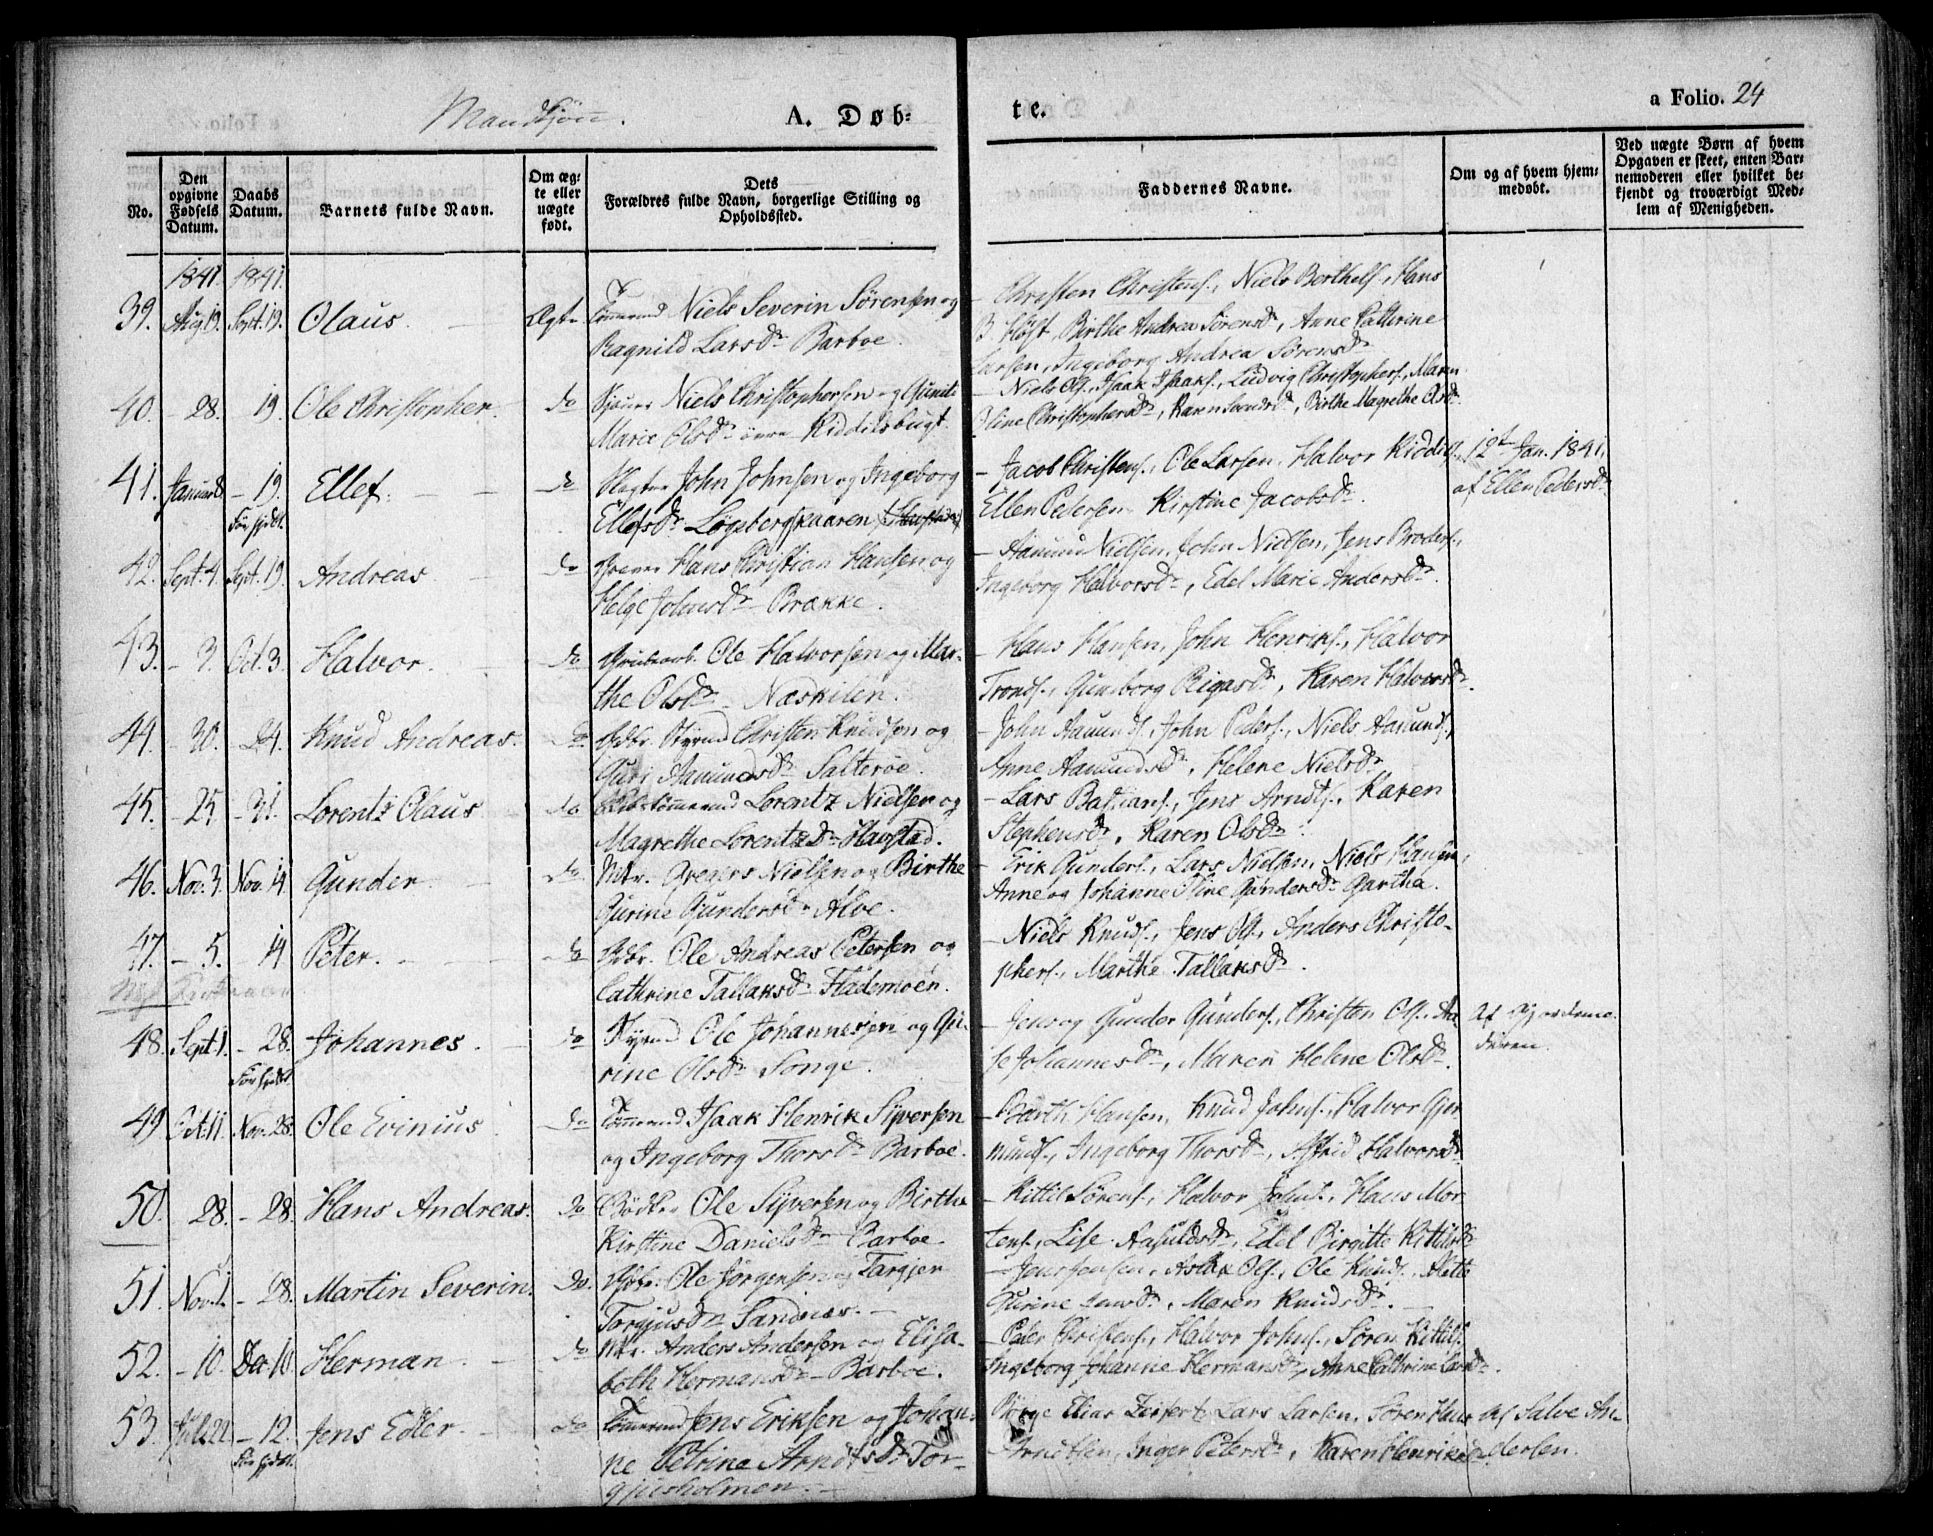 Mandkjøn.
A. Døb-
te.
a Folio. 24
No.
Den opgivne Fødsels Datum.
Daabs Datum.
Barnets fulde Navn.
Om ægte eller uægte født.
Dets Forældres fulde Navn, borgerlige Stilling og Opholdssted.
Faddernes Navne.
Om og af hvem hjemmedøbt.
Ved uægte Børn af hvem Opgaven er skeet, enten Barnemoderen eller hvilket bekjendt og troværdigt Medlem af Menigheden.
1841. 1841.
39. Aug. 19. Sept. 19. Olaus. Ægte Tømmermd Niels Severin Sørensen og
Ragnild Larsdr Barboe.
Christen Christens., Niels Berthels., Hans
B Høst Birthe Andrea Sørensdr, Anne Cathrine
Larsen, Ingeborg Andrea Sørensdr
40. - 28. - 19. Ole Christopher. do Niels Christophersen og Gunil
Marie Olsdr Kiddilsbugt.
Niels Ols., Isaak Isaaks., Ludvig Christophers., Maren
Oline Christophersdr, Karen Svendsdr, Birthe Magrethe Olsdr.
41. Januar 8 - 19. Ellef. do John Johnsen og Ingeborg
Forhjdbt. Ellefsdr Løgsbergskaaren
- Jacob Christens., Ole Larsen, Halvor Kiddig., 12te Jan. 1841.
Ellen Pedersen Kirstine Jacobsdr. af Ellen Pedersdr
42. Sept. 4. Sept. 19. Andreas do Hans Christian Hansen og
Helge Johnsdr Brække.
- Aanund Nielsen, John Nielsen, Jens Broders.,
Ingeborg Halvorsdr, Edel Marie Andersdr.
43. - 3. Oct. 3. Halvor. do Grubearb. Ole Halvorsen og Mar-
the Olsdr Næskilen.
- Hans Hansen, John Henriks., Halvor
Tronds., Gunborg Rigasdr, Karen Halvorsdr.
44. - 30. - 24. Knud Andreas. do Gdbr. Styrmd Christen Knudsen og
Guri Aanundsdr Salterøe.
- John Aanunds. John Peders., Niels Aanunds.,
Anne Aanundsdr, Helene Nielsdr
45. - 25 - 31. Lorentz Olaus do Tømmermd Lorentz Nielsen og
Magrethe Lorentzdr Havstad.
- Lars Bastians., Jens Arndts., Karen
Stephensdr, Karen Olsdr.
46. Nov. 3. Nov. 14. Gunder do Mtr. Greners Nielsen og Birthe
Gurine Gundersdr Alve.
- Erik Gunders., Lars Nielsen, Niels Hansen,
Anne og Johanne Stine Gundersdr Gartha.
47. - 5. - 14 Peter. do Gdbr. Ole Andreas Petersen og
Cathrine Tallaksdr Flademoen.
- Niels Knuds., Jens Ols., Anders Christo-
phers., Marthe Tallaksdr.
48. Sept. 1. - 28. Johannes. do Styrmd Ole Johannesen og Gu-
Forhjdbt rine Olsdr Songe.
- Jens og Gunder Gunders., Christen Ols., Aa
se Johannesdr, Maren Helene Olsdr.
Af Gjordemo-
deren.
49. Oct. 11. Nov. 28. Ole Evinius do Tømmermd Isaak Henrik Syversen
og Ingeborg Thorsdr Barboe.
- Barth Hansen, Knud Johns., Halvor Gjer
munds., Ingeborg Thorsdr, Astrid Halvorsdr
50. - 28. - 28. Hans Andreas. do Bødker Ole Syversen og Birthe
Kirstine Danielsdr Barboe.
- Kittil Sørens., Halvor Johns., Hans Mor
tens., Lise Aasuldsdr, Edel Birgitte Kittilsdr
51. Nov. 1. - 28. Martin Severin. do. Gdbr. Ole Jørgensen og Targjer
Torjusdr Sandnes.
- Jens Jensen, Aslak Ols., Ole Knuds., Alette
Gurine Jensdr, Maren Knudsdr.
52. - 10. Dec. 10. Herman. do Mtr. Anders Andersen og Elisa-
beth Hermansdr Barboe.
- Peter Christens., Halvor Johns., Søren Kittils.
Ingeborg Johanne Hermansdr, Anne Cathrine Larsdr.
53. Juli 22 - 12. Jens Edler. do Tømmermd Jens Eriksen og Johan-
Forhjdbt. ne Petrine Arndtsdr Tor-
gjusholmen.
Børge Elias Zeifert, Lars Larsen, Søren Hans
Arndtsen, Inger Petersdr, Karen Henriksdr
Af Salve An-
dersen.